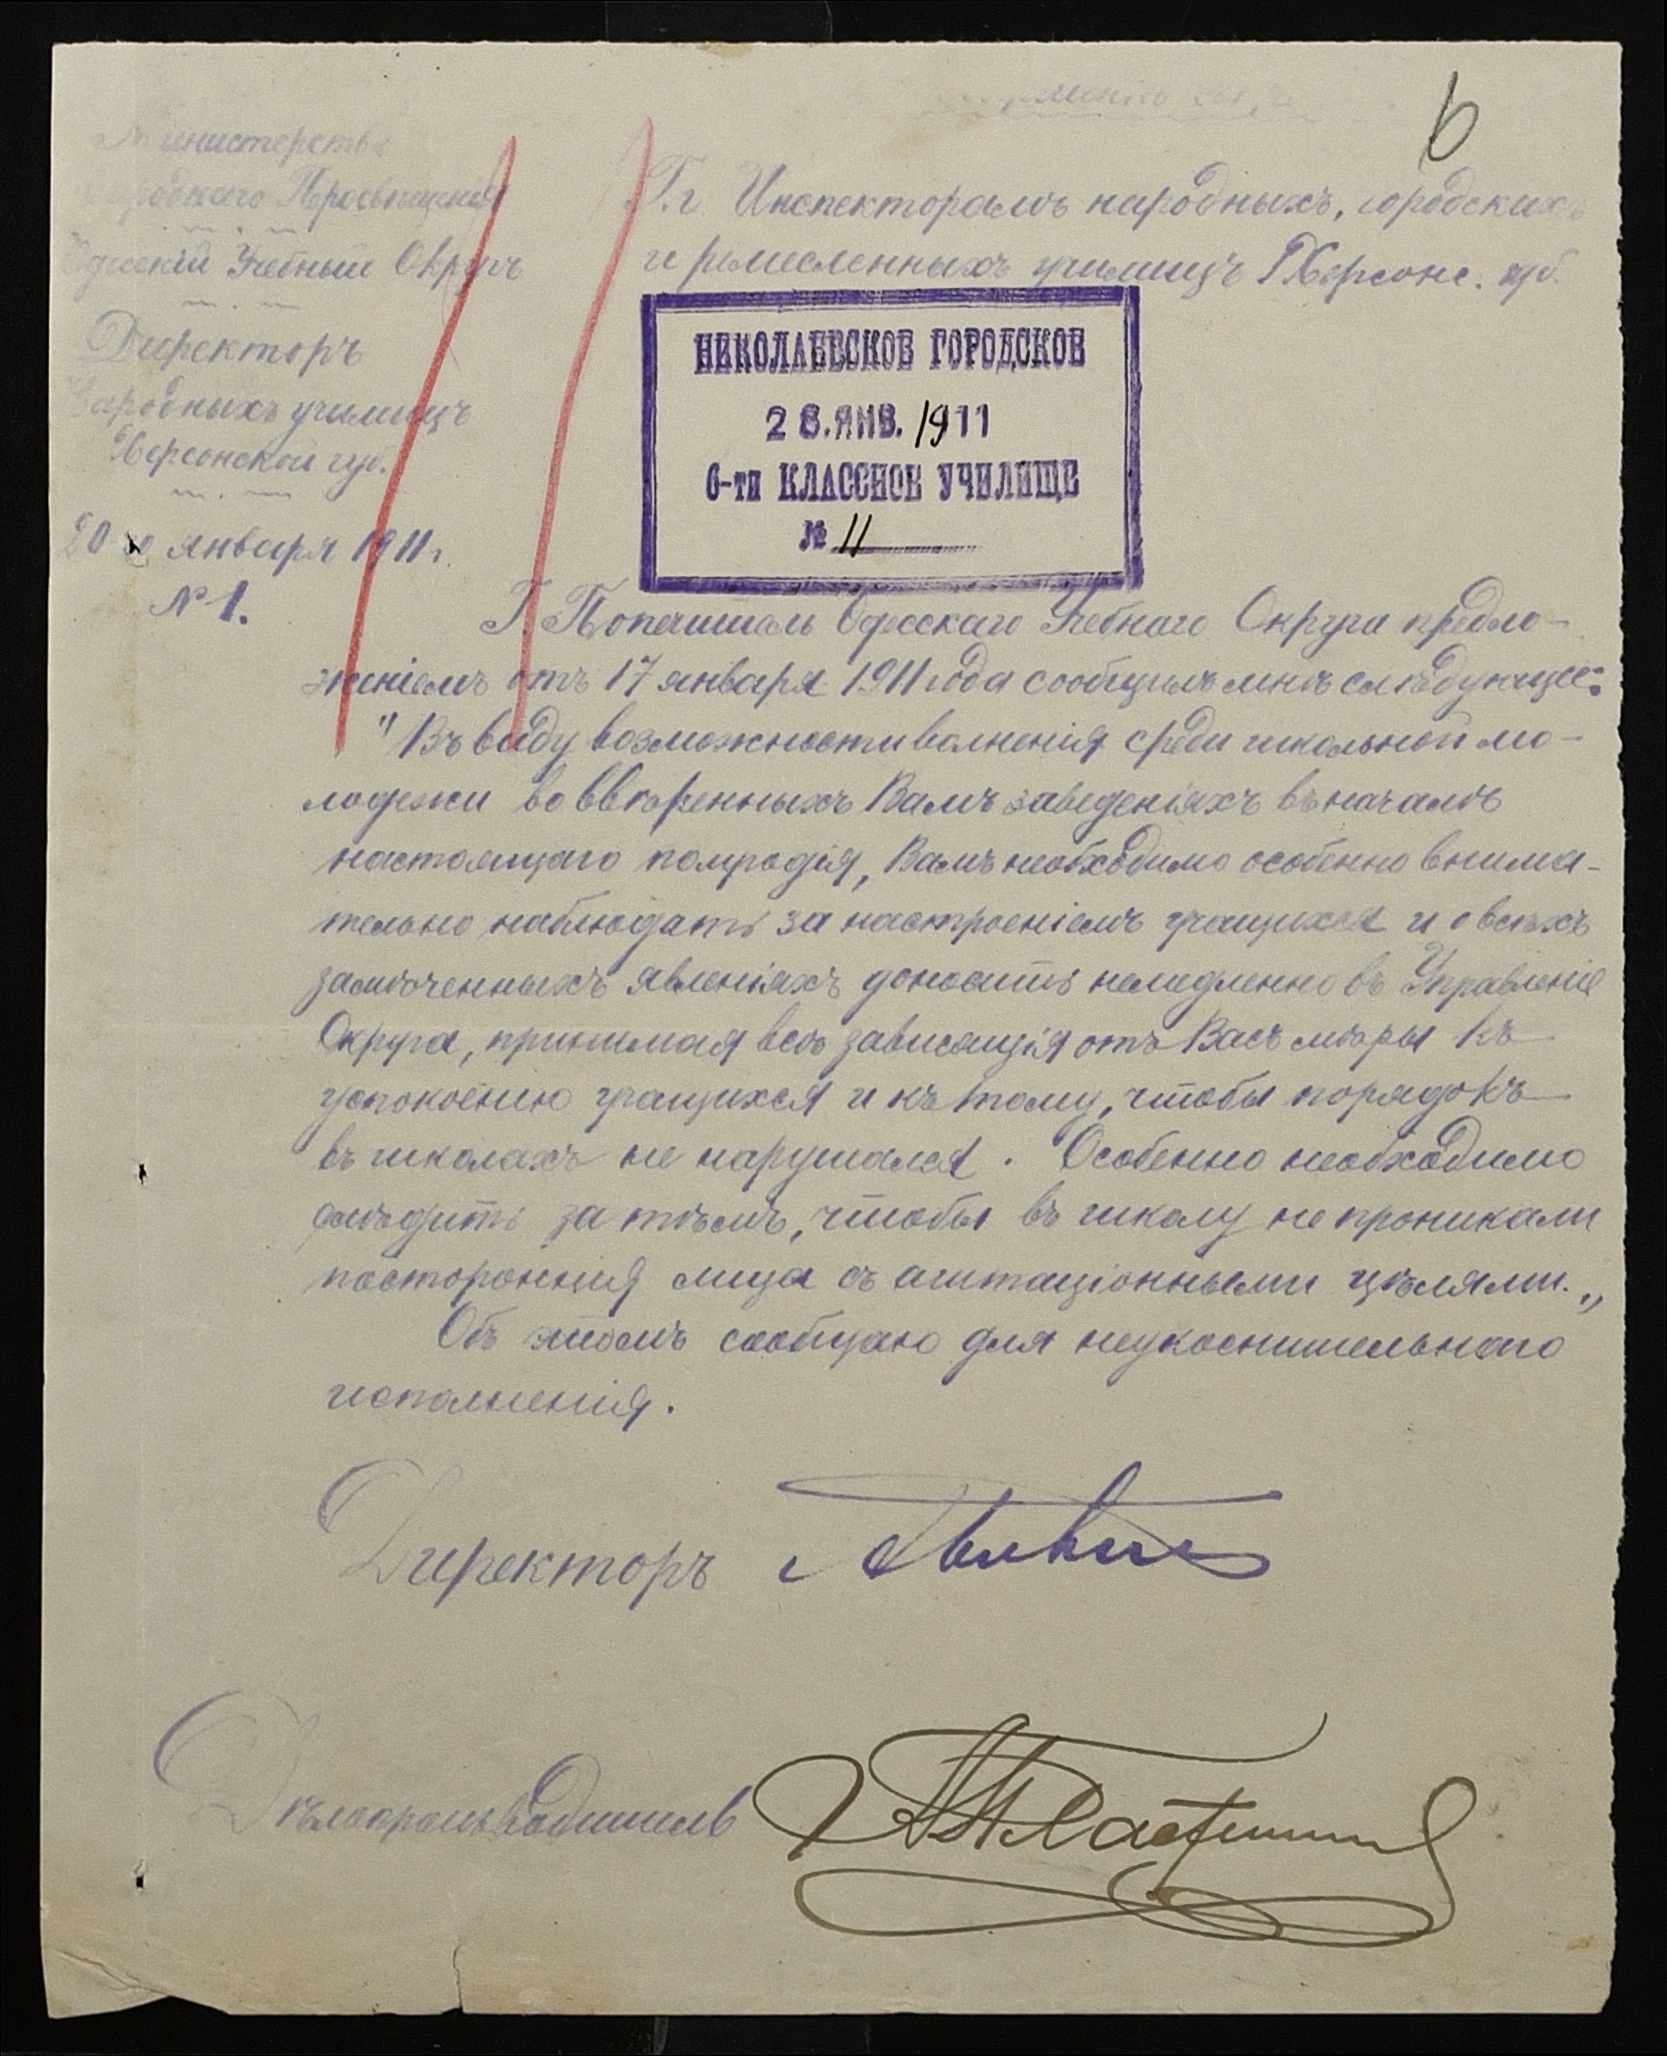 6
Министерство
Народнаго Просвѣщенія
Одесскій Учебный Округъ
Директоръ
Народныхъ училищъ
Херсонской губ.
20 января 1911 г.
№ 1.
Г.г. Инспекторамъ народныхъ, городскихъ
и ремесленныхъ училищъ Херсонс. губ.
НИКОЛАЕВСКОЕ ГОРОДСКОЕ
28.ЯНВ. 1911
6-ти КЛАССНОЕ УЧИЛИЩЕ
№ 11
Г. Попечитель Одесскаго Учебнаго Округа предло-
женіемъ отъ 17 января 1911 года сообщилъ мнѣ слѣдующее:
"Въ виду возможности волненія среди школьной мо-
лодежи во ввѣренныхъ Вамъ заведеніяхъ въ началѣ
настоящаго полугодія, Вамъ необходимо особенно внима-
тельно наблюдать за настроеніемъ учащихся и о всѣхъ
замѣченныхъ явленіяхъ доносить немедленно въ Управленіе
Округа, принимая всѣ зависящія отъ Васъ мѣры къ
успокоенію учащихся и къ тому, чтобы порядокъ
въ школахъ не нарушался. Особенно необходимо
слѣдить за тѣмъ, чтобы въ школу не проникали
постороннія лица съ агитаціонными цѣлями."
Объ этомъ сообщаю для неукоснительнаго
исполненія.
Директоръ
Дѣлопроизводитель